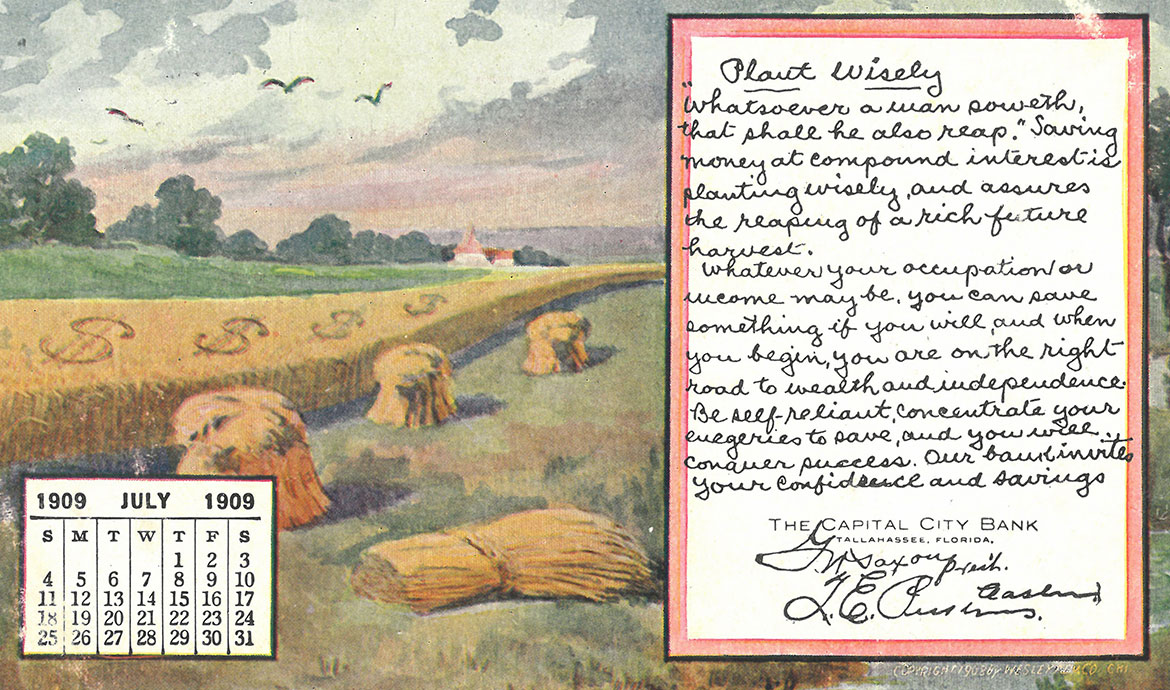 Plant Wisely
"Whatsoever a man soweth,
that shall he also reap." Saving
money at compound interest is
planting wisely, and assures
the reaping of a rich future
harvest.
Whatever your occupation or
income may be, you can save
something if you will, and when
you begin, you are on the right
road to wealth and independence.
Be self-reliant, concentrate your
enegeries to save, and you will
conquer success. Our bank invites
your confidence and savings
THE CAPITAL CITY BANK
TALLAHASSEE, FLORIDA.
G W Saxon Pres't.
T. E. Perkins. Cashier
1909 JULY 1909
S M T W T F S
1 2 3
4 5 6 7 8 9 10
11 12 13 14 15 16 17
18 19 20 21 22 23 24
25 26 27 28 29 30 31
$ $ $ $
COPYRIGHT 1908 by WESLEY & CO. CHI